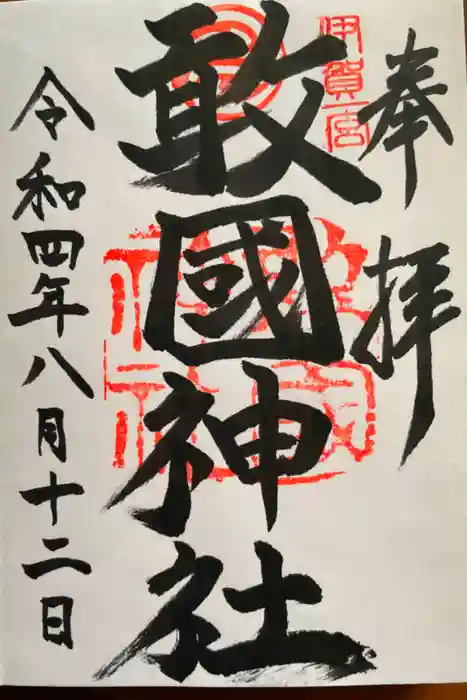 奉拝
伊賀一宮
敢國神社
令和四年八月十二日